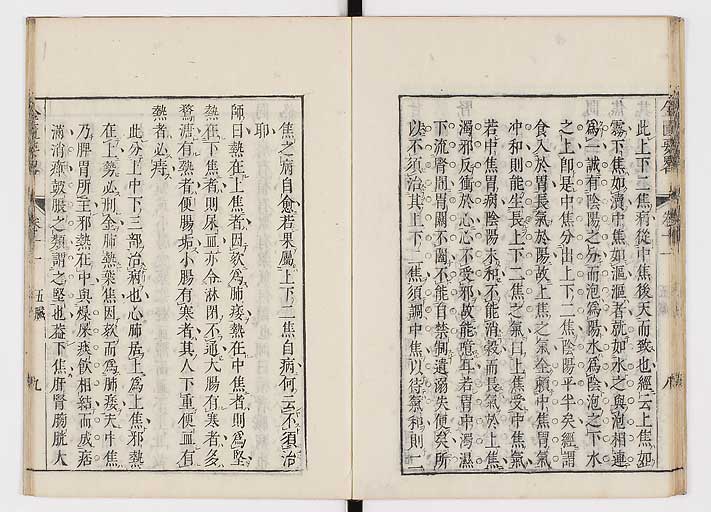 此上下二焦病從中焦後天而致也經云上焦如
霧下焦如瀆中焦如漚漚者就如水之與泡相連
為一誠有陰陽之分而泡為陽水為陰泡之下水
之上卽是中焦分出上下二焦陰陽平半矣經謂
食入於胃長氣於陽故上焦之氣全賴中焦胃氣
冲和則能生長上下二焦之氣曰上焦受中焦氣
若中焦胃病陰陽未和不能消穀而長氣於上焦
濁邪反衝於心心不受邪故能噫耳若胃中濁濕
下流腎間胃關不闔不能自禁制遺溺失便矣所
以不須治其上下二焦須調中焦以待氣和則二
焦之病自愈若果屬上下二焦自病何云不須治
耶
師曰熱在上焦者因欬為肺痿熱在中焦者則為堅
熱在下焦者則尿血亦令淋閉不通大腸有寒者多
鶩溏有熱者便腸垢小腸有寒者其人下重便血有
熱者必痔
此分上中下三部治病也心肺居上為上焦邪熱
在上勢必刑金肺熱葉焦因欬而為肺痿夫中焦
乃脾胃所主邪熱在中與燥屎痰飲相結而成痞
滿消癉鼓脹之類謂之堅也蓋下焦肝腎膀胱大
五臟
九